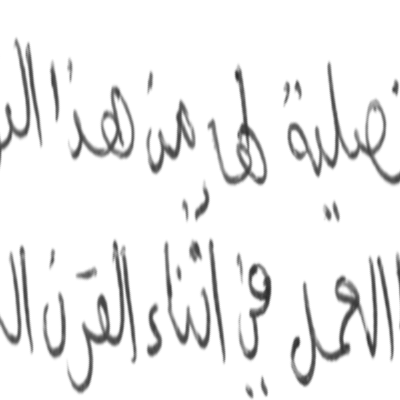 تصلية لها من هذا
العمل في أثناء القرن